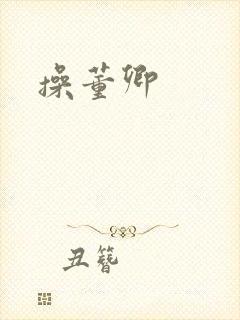 操董卿
丑簪